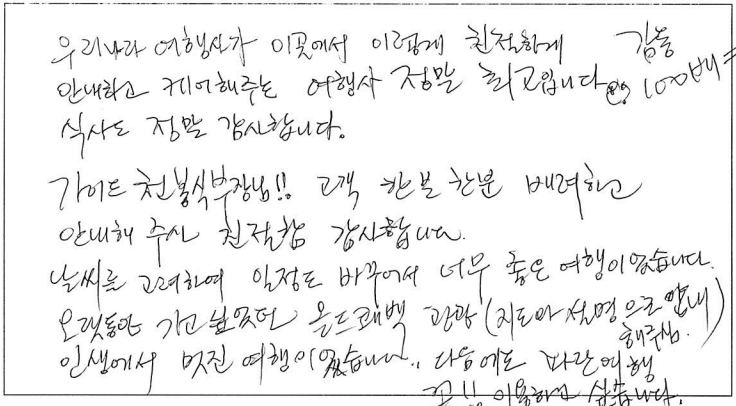 우리나라 여행사가 이곳에서 이렇게 친절하게 감동
안내하고 케어해주는 여행사 정말 최고입니다 100배
식사도 정말 감사합니다.
가이드 천봉식부장님!! 고객 한분 한분 배려하고
안내해 주사 친절함 감사합니다.
날씨를 고려하여 일정도 바꾸어서 너무 좋은 여행이었습니다.
오랫동안 가고 싶었던 올드퀘벡 관광 (지도와 설명으로 안내
해주심.)
인생에서 멋진 여행이었습니다.. 다음에도 파란여행
꼭!! 이용하고 싶습니다.